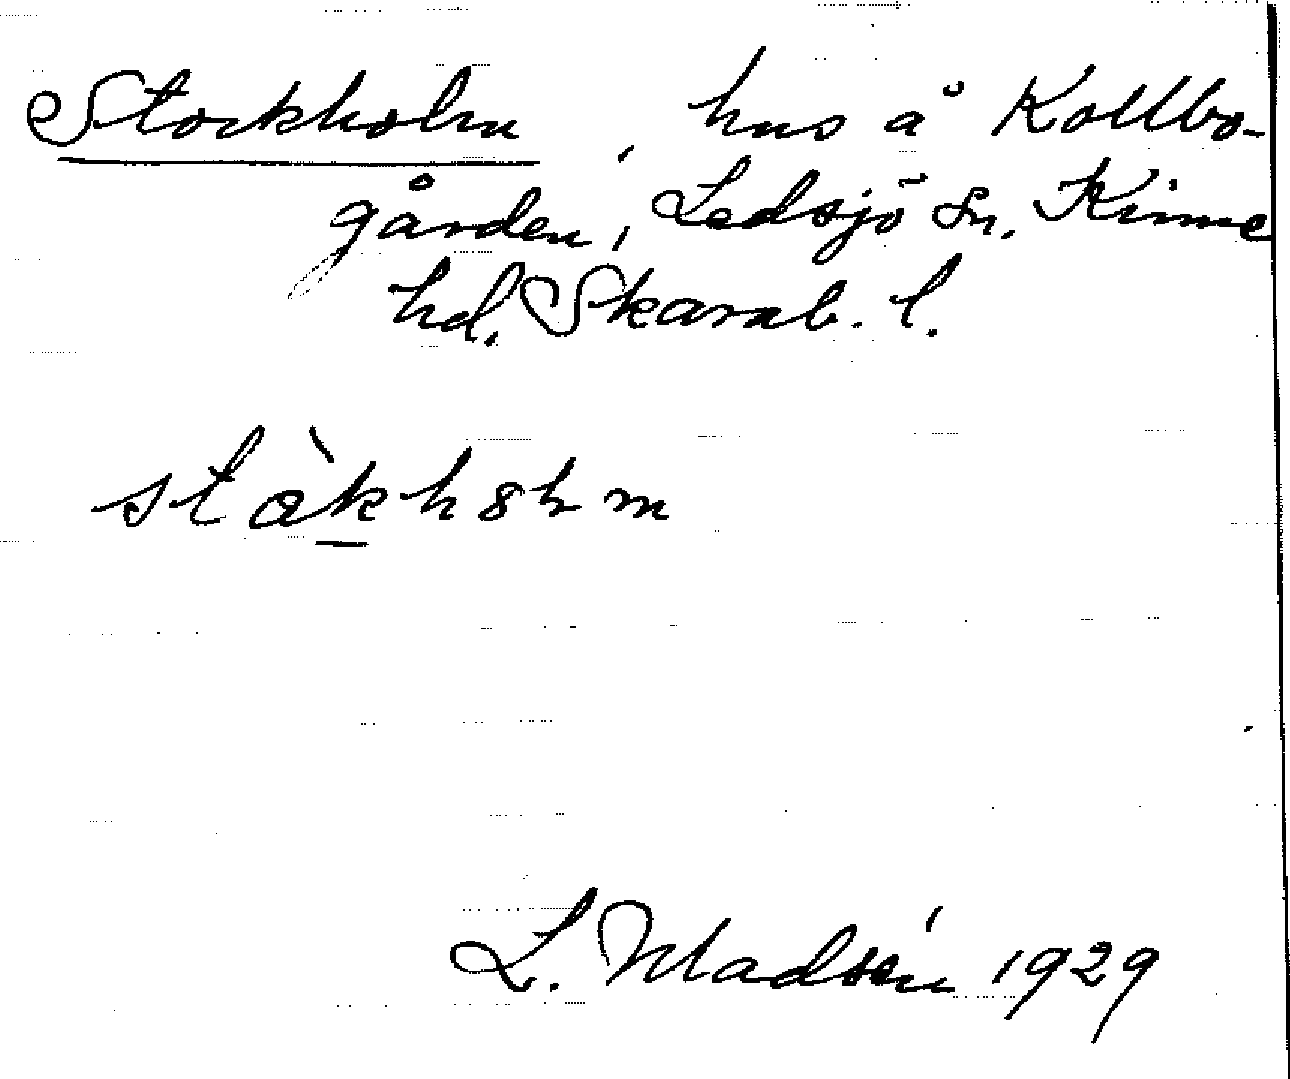 Stockholm, hus å Kollbo-
gården, Ledsjö sn. Kinne
hd. Skarab. l.
stàkhshm
L. Madsén 1929